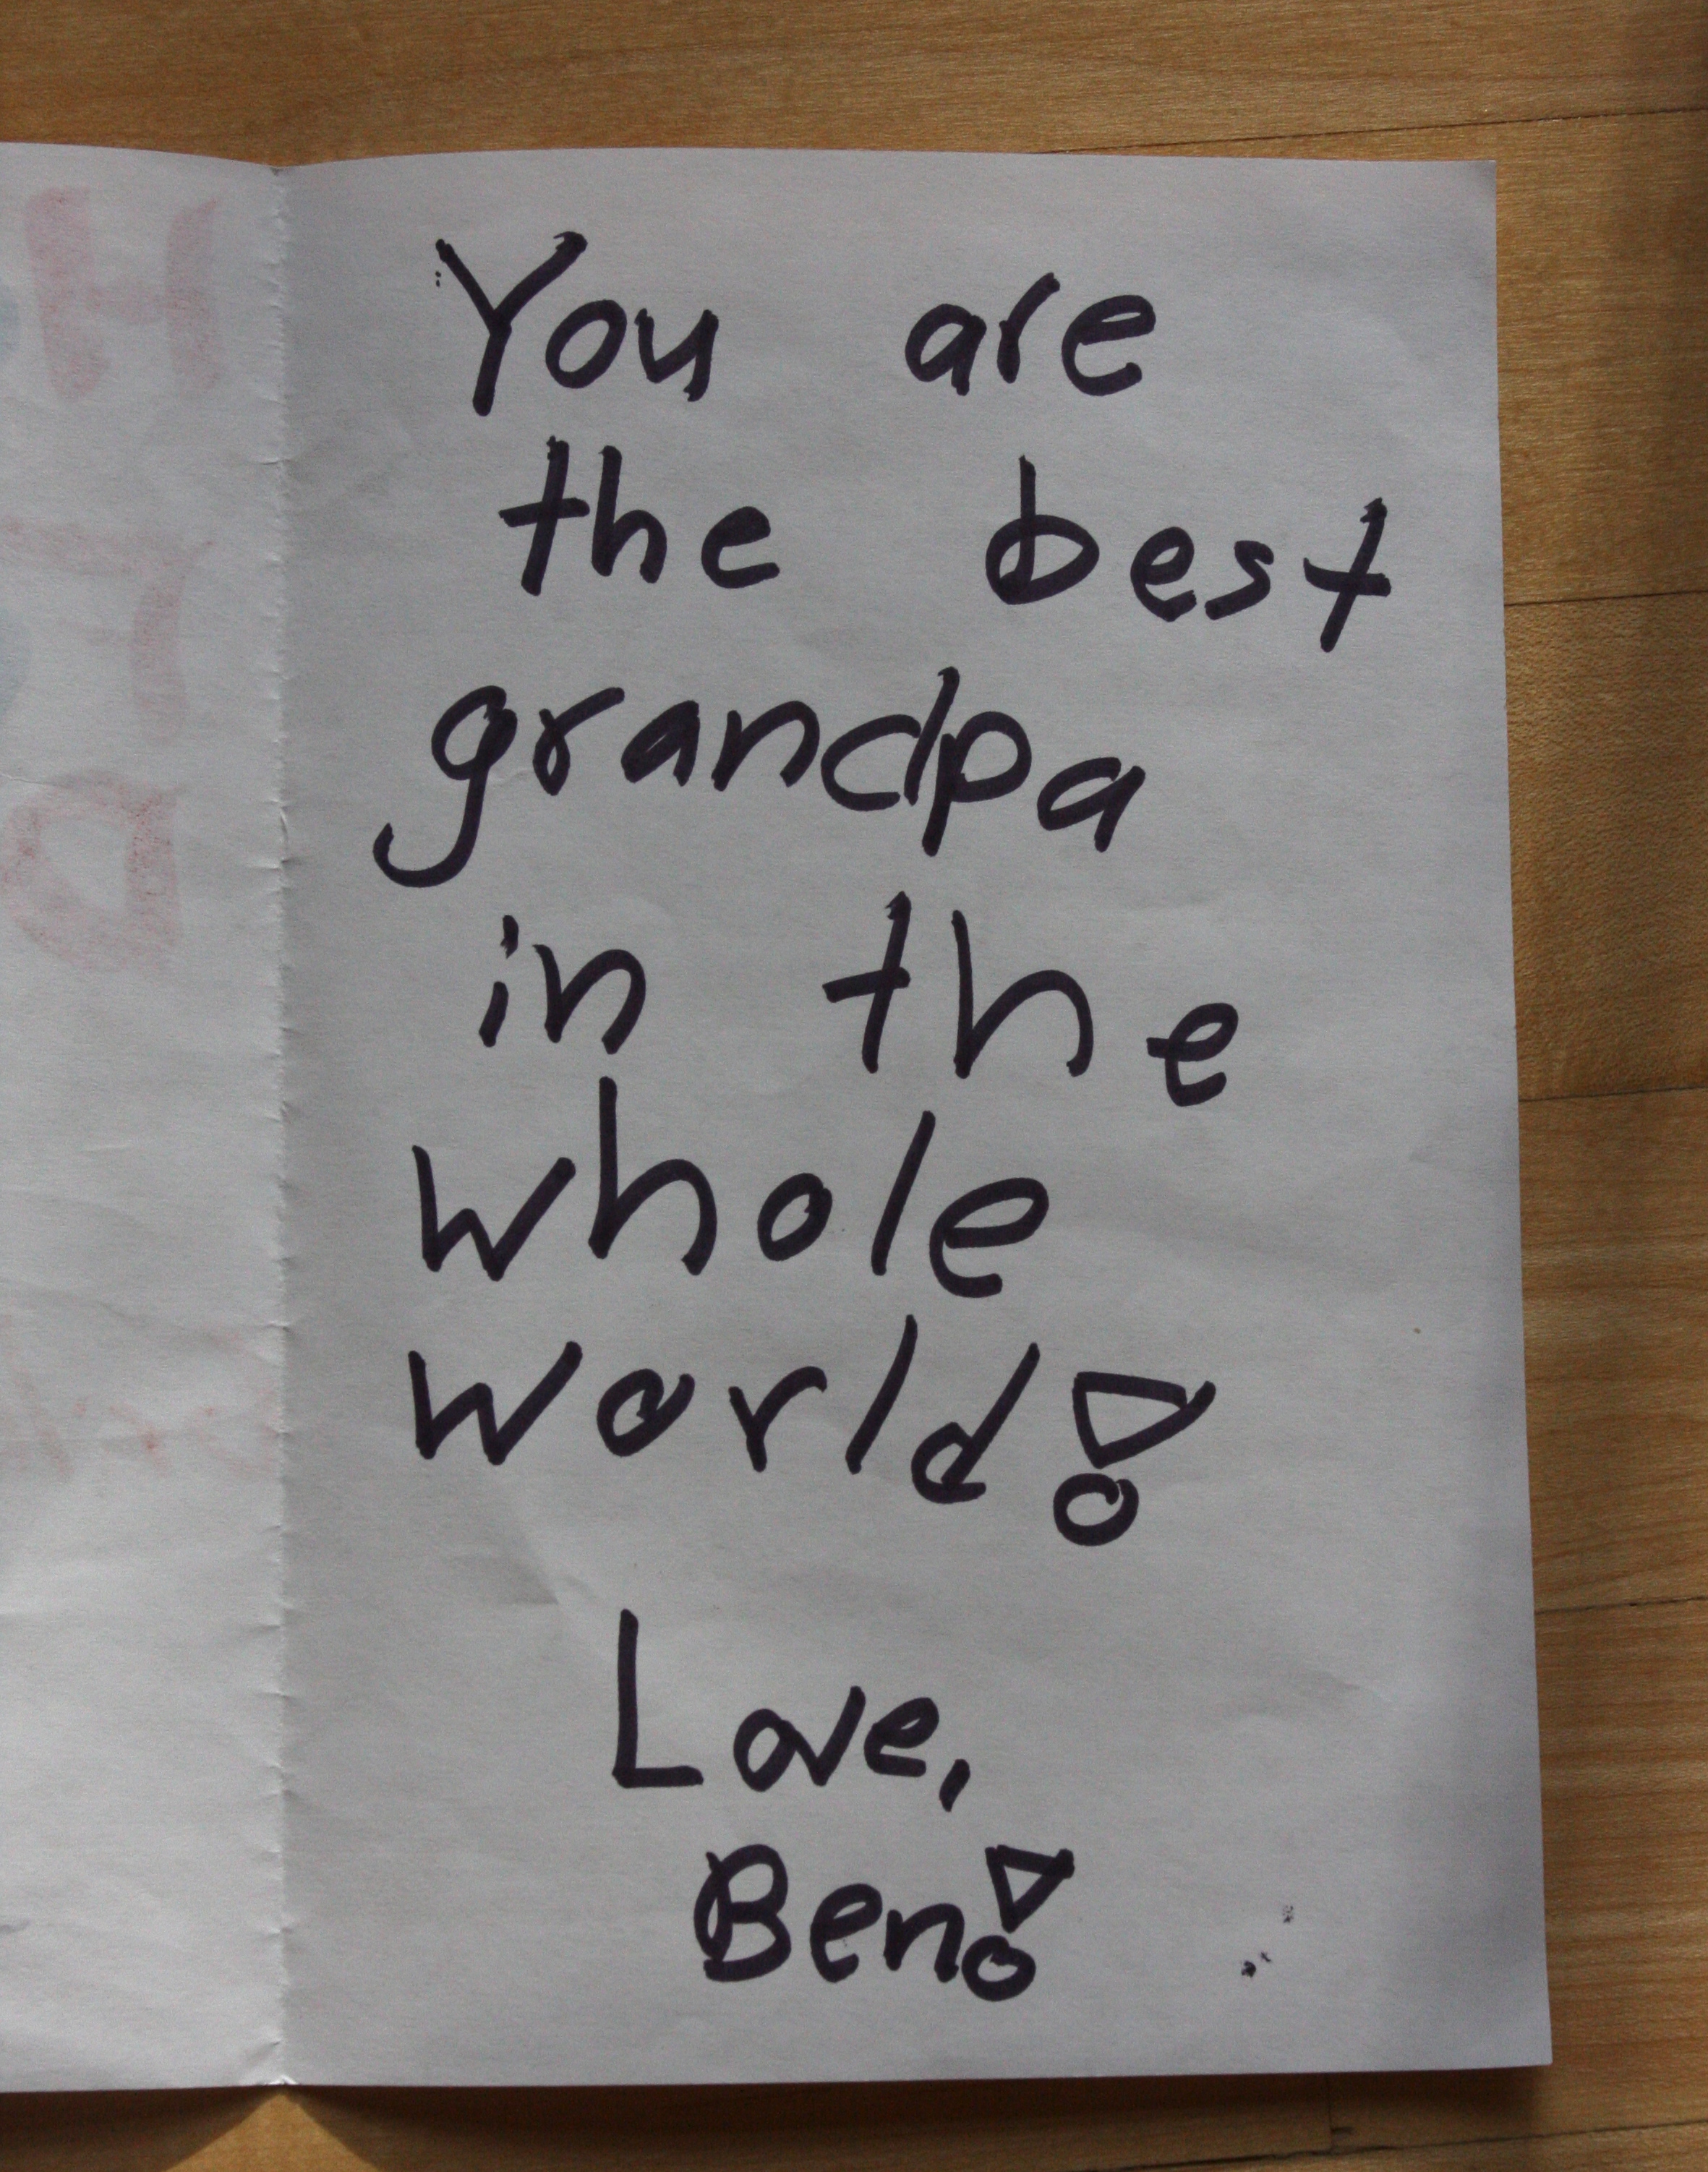 You are
the best
grandpa
in the
whole
world!
Love,
Ben!